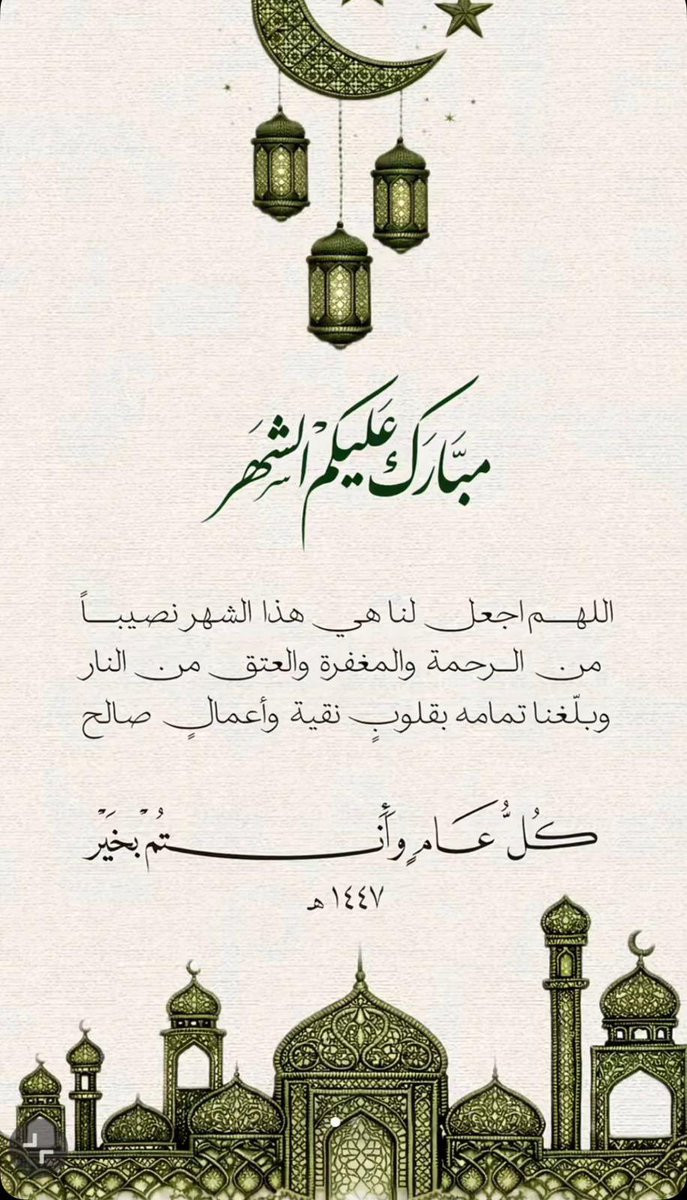 مبَّارَك عَليكمْ الشَّهَر
اللهم اجعل لنا هي هذا الشهر نصيباً
من الرحمة والمغفرة والعتق من النار
وبلّغنا تمامه بقلوبٍ نقية وأعمالٍ صالح
كُلُّ عَـامٍ وأَنـتُمْ بخَيْر
١٤٤٧ هـ